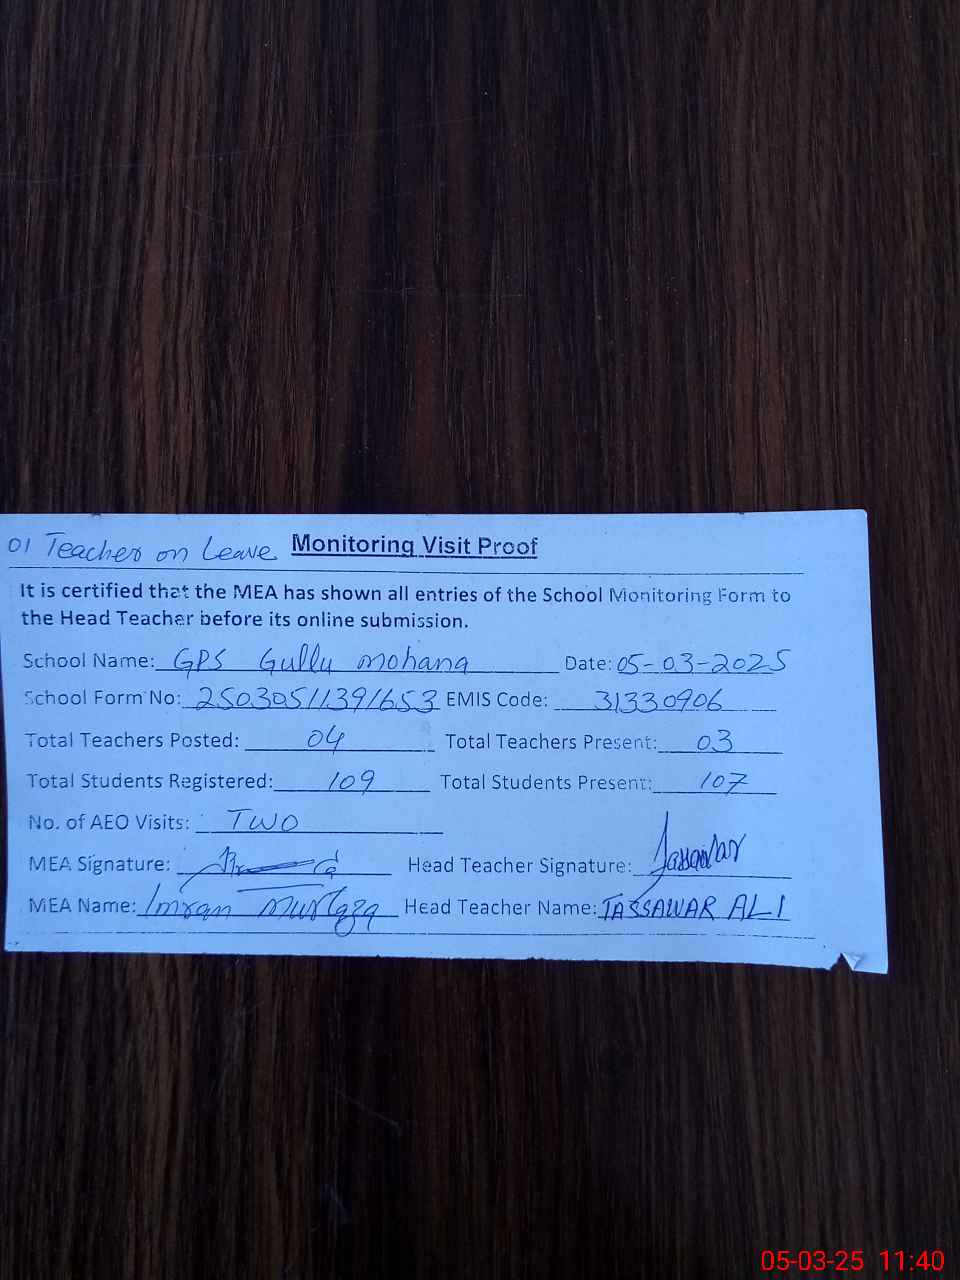 01 Teacher on Leave Monitoring Visit Proof
It is certified that the MEA has shown all entries of the School Monitoring Form to
the Head Teacher before its online submission.
School Name: GPS Gullu mohana Date: 05-03-2025
School Form No: 25030511391653 EMIS Code: 31330906
Total Teachers Posted: 04 Total Teachers Present: 03
Total Students Registered: 109 Total Students Present: 107
No. of AEO Visits: TWO
MEA Signature: Head Teacher Signature: Tassawar
MEA Name: Imran Murtaza Head Teacher Name: TASSAWAR ALI
05-03-25 11:40